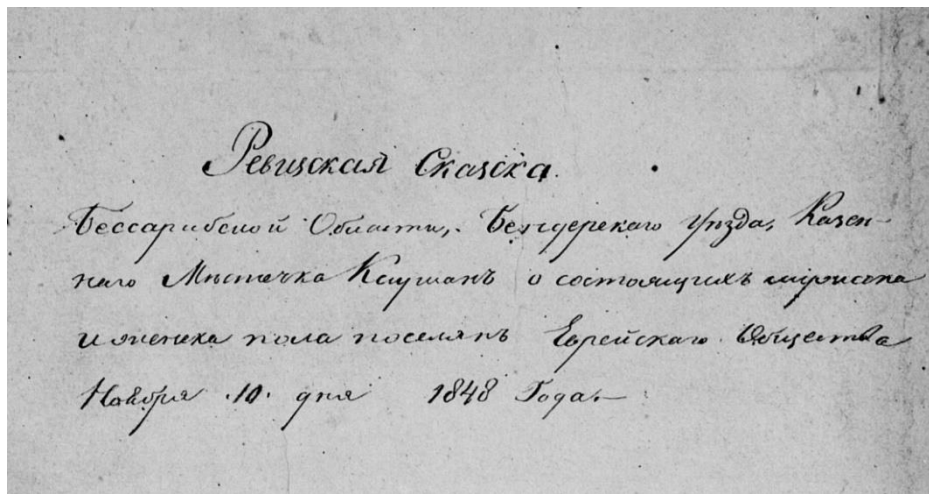 Ревизская Сказка.
Бессарабской Области, Бендерскаго Уѣзда, Казен-
наго Мѣстечка Каушанъ о состоящихъ мужеска
и женска пола поселянъ Еврейскаго Общества
Ноября 10. дня 1848 Года.